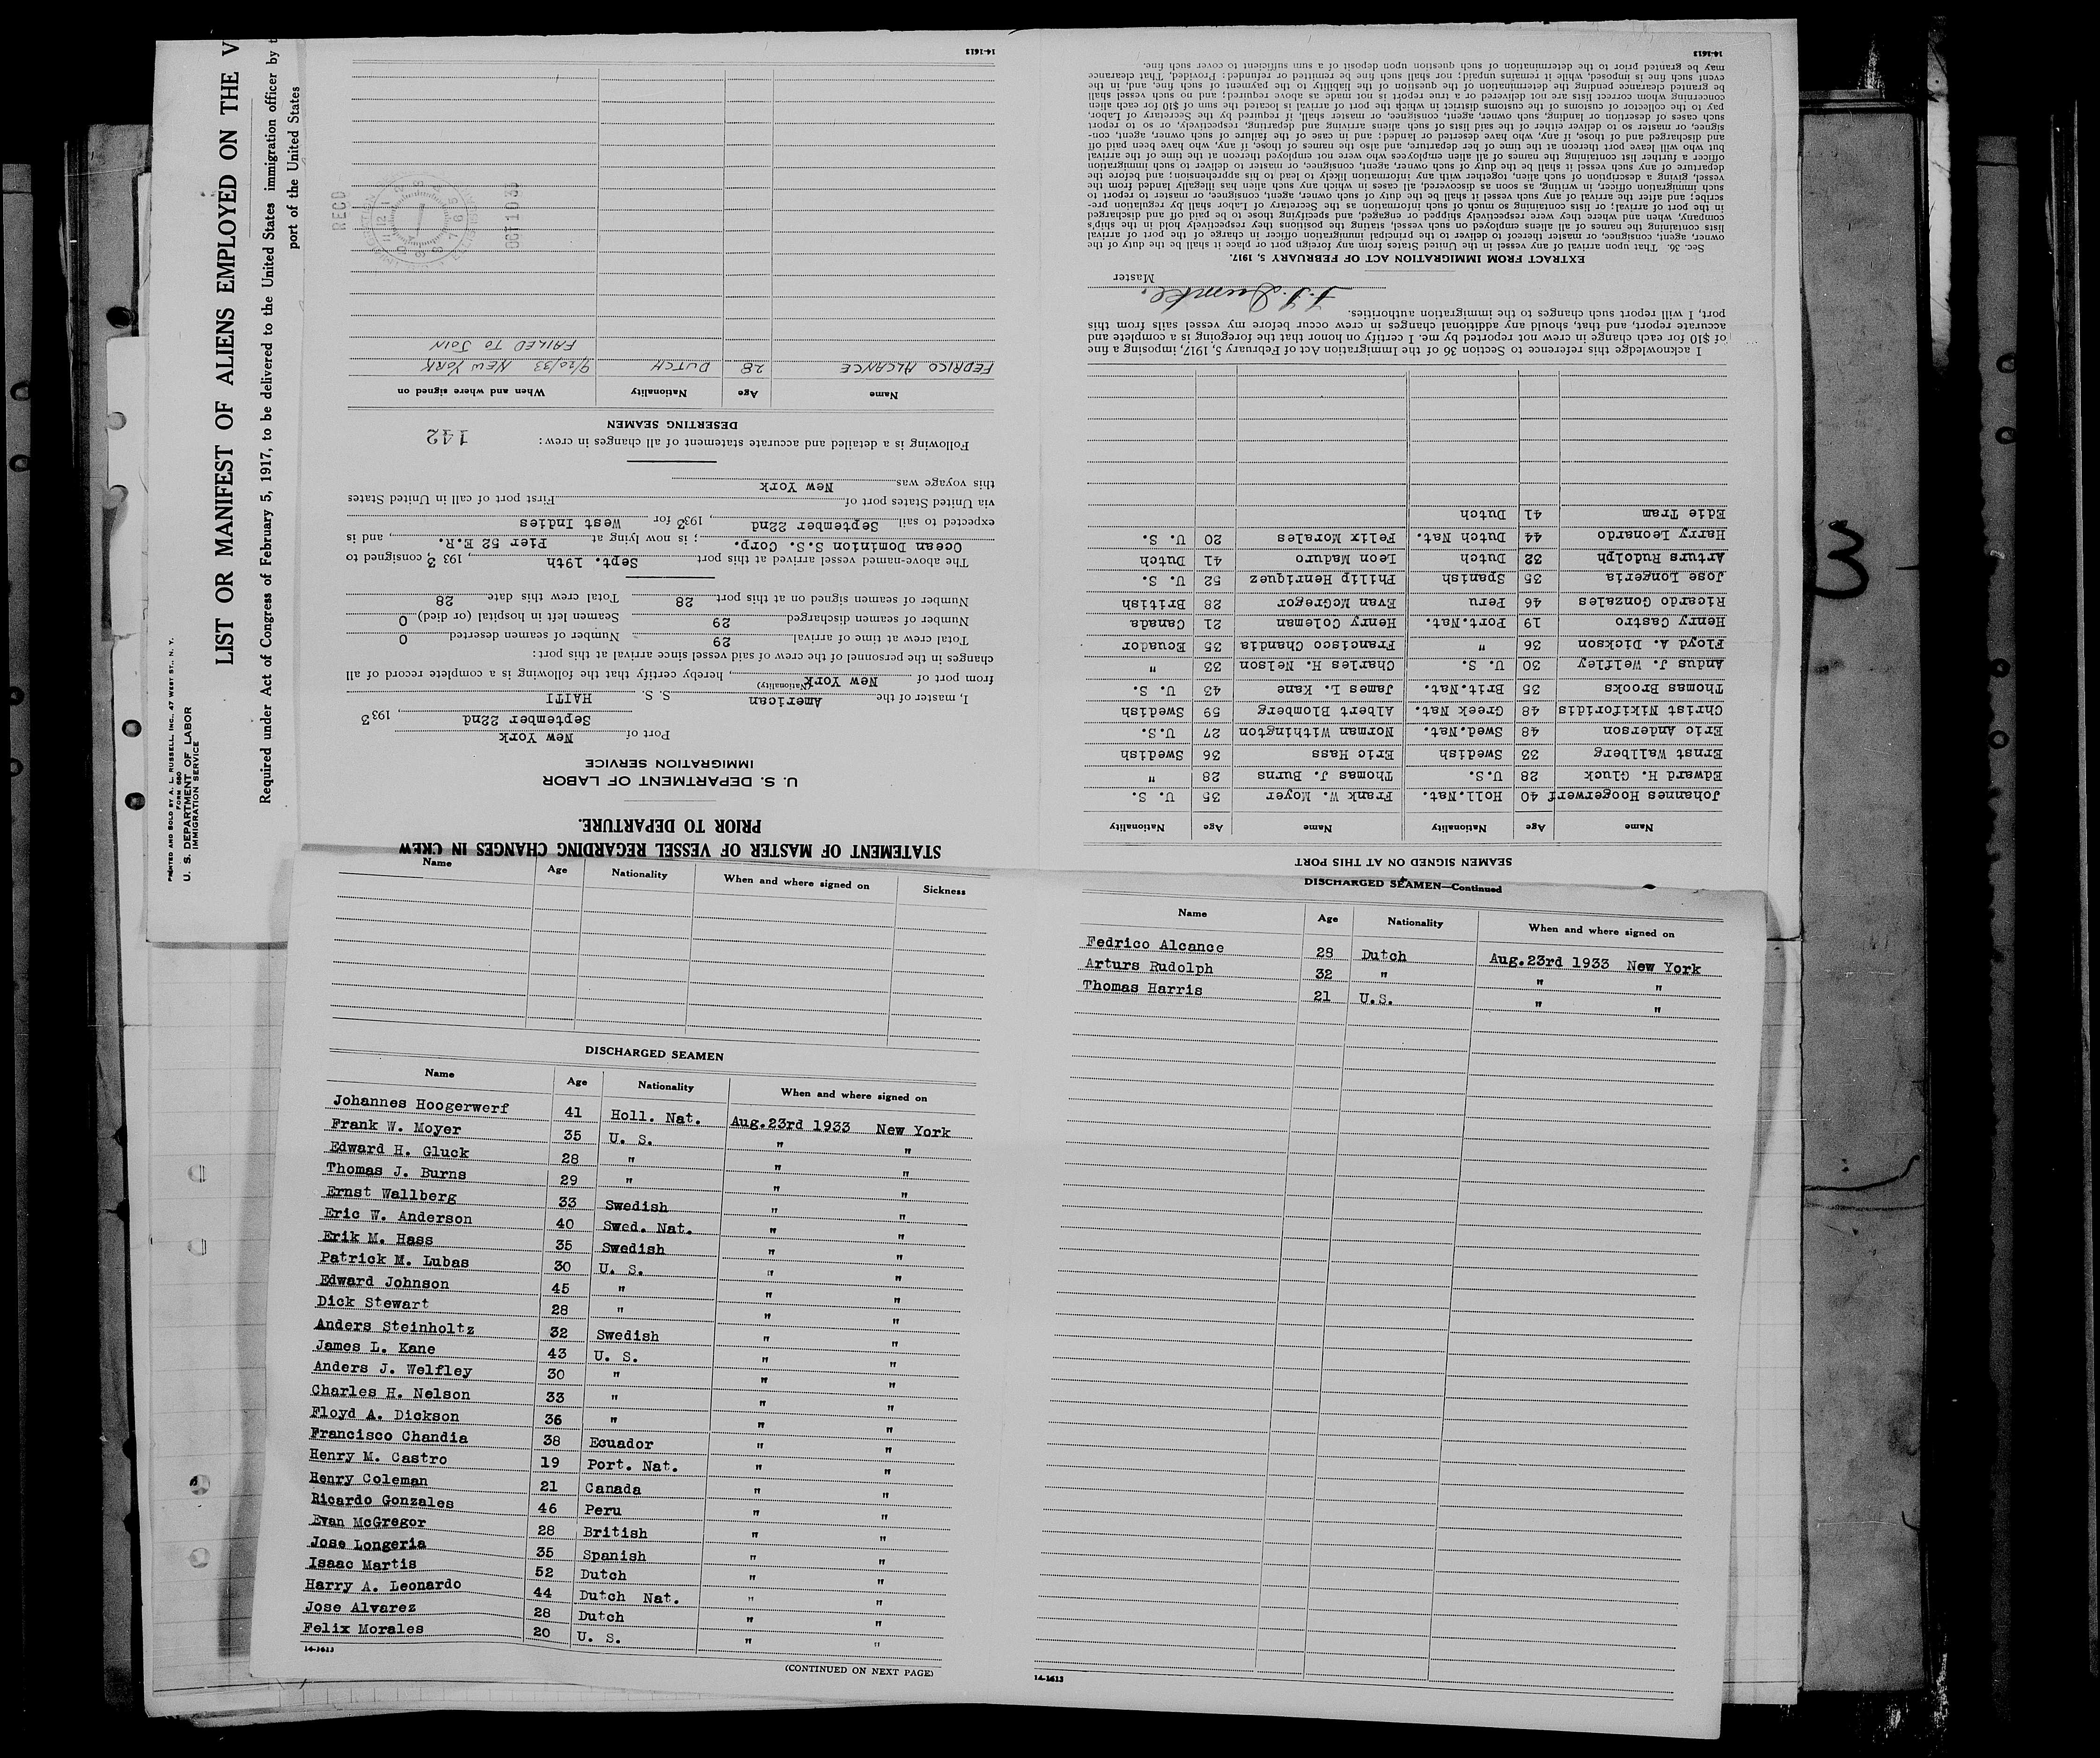 PRINTED AND SOLD BY A. L. RUSSELL, INC., 47 WEST ST., N. Y.
FORM 680
U. S. DEPARTMENT OF LABOR
IMMIGRATION SERVICE
LIST OR MANIFEST OF ALIENS EMPLOYED ON THE V
Required under Act of Congress of February 5, 1917, to be delivered to the United States immigration officer by t
port of the United States
STATEMENT OF MASTER OF VESSEL REGARDING CHANGES IN CREW
PRIOR TO DEPARTURE.
U. S. DEPARTMENT OF LABOR
IMMIGRATION SERVICE
Port of New York
September 22nd, 1933
I, master of the American S. S. HAITI
(Nationality)
from port of New York, hereby certify that the following is a complete record of all
changes in the personnel of the crew of said vessel since arrival at this port:
Total crew at time of arrival 29 Number of seamen deserted 0
Number of seamen discharged 29 Seamen left in hospital (or died) 0
Number of seamen signed on at this port 28 Total crew this date 28
The above-named vessel arrived at this port Sept. 19th, 1933, consigned to
Ocean Dominion S.S. Corp.; is now lying at Pier 52 E.R., and is
expected to sail September 22nd, 1933 for West Indies
via United States port of First port of call in United States
this voyage was New York
Following is a detailed and accurate statement of all changes in crew: 142
DESERTING SEAMEN
Name Age Nationality When and where signed on
FEDRICO ALCANCE 28 DUTCH 9/20/33 NEW YORK
FAILED TO JOIN
RECD
OCT 10 33
14-1613
SEAMEN SIGNED ON AT THIS PORT
Name Age Nationality Name Age Nationality
Johannes Hoogerwerf 40 Holl.Nat. Frank W. Moyer 35 U. S.
Edward H. Gluck 28 U.S. Thomas J. Burns 28 "
Ernst Wallberg 33 Swedish Eric Hass 36 Swedish
Eric Anderson 48 Swed.Nat. Norman Withington 27 U.S.
Christ Nikiforidis 48 Greek Nat. Albert Blomberg 59 Swedish
Thomas Brooks 35 Brit.Nat. James L. Kane 43 U. S.
Andus J. Welfley 30 U. S. Charles H. Nelson 33 "
Floyd A. Dickson 36 " Francisco Chandia 35 Ecuador
Henry Castro 19 Port.Nat. Henry Coleman 21 Canada
Ricardo Gonzales 46 Peru Evan McGregor 28 British
Jose Longeria 35 Spanish Philip Henriquez 52 U. S.
Arturs Rudolph 32 Dutch Leon Maduro 41 Dutch
Harry Leonardo 44 Dutch Nat. Felix Morales 20 U. S.
Edie Tram 41 Dutch
I acknowledge this reference to Section 36 of the Immigration Act of February 5, 1917, imposing a fine
of $10 for each change in crew not reported by me. I certify on honor that the foregoing is a complete and
accurate report, and that, should any additional changes in crew occur before my vessel sails from this
port, I will report such changes to the immigration authorities.
Master
EXTRACT FROM IMMIGRATION ACT OF FEBRUARY 5, 1917.
Sec. 36. That upon arrival of any vessel in the United States from any foreign port or place it shall be the duty of the
owner, agent, consignee, or master thereof to deliver to the principal immigration officer in charge of the port of arrival
lists containing the names of all aliens employed on such vessel, stating the positions they respectively hold in the ship's
company, when and where they were respectively shipped or engaged, and specifying those to be paid off and discharged
in the port of arrival; or lists containing so much of such information as the Secretary of Labor shall by regulation pre-
scribe; and after the arrival of any such vessel it shall be the duty of such owner, agent, consignee, or master to report to
such immigration officer, in writing, as soon as discovered, all cases in which any such alien has illegally landed from the
vessel, giving a description of such alien, together with any information likely to lead to his apprehension; and before the
departure of any such vessel it shall be the duty of such owner, agent, consignee, or master to deliver to such immigration
officer a further list containing the names of all alien employees who were not employed thereon at the time of the arrival
but who will leave port thereon at the time of her departure, and also the names of those, if any, who have been paid off
and discharged and of those, if any, who have deserted or landed; and in case of the failure of such owner, agent, con-
signee, or master so to deliver either of the said lists of such aliens arriving and departing, respectively, or so to report
such cases of desertion or landing, such owner, agent, consignee, or master shall, if required by the Secretary of Labor,
pay to the collector of customs of the customs district in which the port of arrival is located the sum of $10 for each alien
concerning whom correct lists are not delivered or a true report is not made as above required; and no such vessel shall
be granted clearance pending the determination of the question of the liability to the payment of such fine, and, in the
event such fine is imposed, while it remains unpaid; nor shall such fine be remitted or refunded: Provided, That clearance
may be granted prior to the determination of such question upon deposit of a sum sufficient to cover such fine.
14-1613
3
Name Age Nationality When and where signed on Sickness
DISCHARGED SEAMEN
Name Age Nationality When and where signed on
Johannes Hoogerwerf 41 Holl. Nat. Aug.23rd 1933 New York
Frank W. Moyer 35 U. S. " "
Edward H. Gluck 28 " " "
Thomas J. Burns 29 " " "
Ernst Wallberg 33 Swedish " "
Eric W. Anderson 40 Swed. Nat. " "
Erik M. Hass 35 Swedish " "
Patrick M. Lubas 30 U. S. " "
Edward Johnson 45 " " "
Dick Stewart 28 " " "
Anders Steinholtz 32 Swedish " "
James L. Kane 43 U. S. " "
Anders J. Welfley 30 " " "
Charles H. Nelson 33 " " "
Floyd A. Dickson 36 " " "
Francisco Chandia 38 Ecuador " "
Henry M. Castro 19 Port. Nat. " "
Henry Coleman 21 Canada " "
Ricardo Gonzales 46 Peru " "
Evan McGregor 28 British " "
Jose Longeria 35 Spanish " "
Isaac Martis 52 Dutch " "
Harry A. Leonardo 44 Dutch Nat. " "
Jose Alvarez 28 Dutch " "
Felix Morales 20 U. S. " "
14-1613
(CONTINUED ON NEXT PAGE)
DISCHARGED SEAMEN—Continued
Name Age Nationality When and where signed on
Fedrico Alcance 28 Dutch Aug.23rd 1933 New York
Arturs Rudolph 32 " " "
Thomas Harris 21 U.S. " "
14-1613